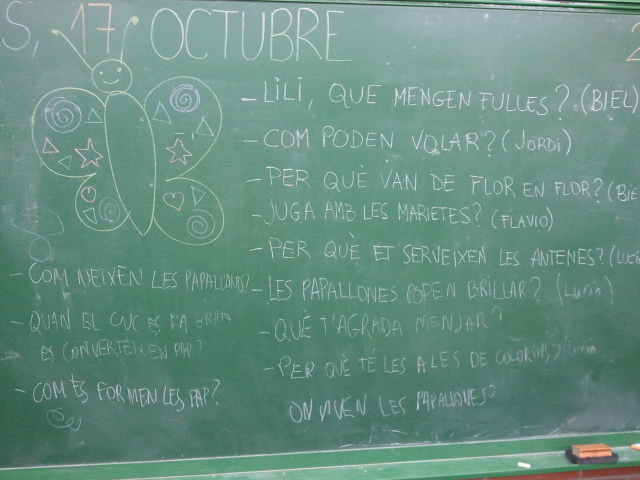 S, 17 OCTUBRE 2
- LiLi, QUE MENGEN FULLES? (BIEL)
- COM PODEN VOLAR? (JORDi)
- PER QUÈ VAN DE FLOR EN FLOR? (BIE
- JUGA AMB LES MARIETES? (FLAVIO)
- PER QUÈ ET SERVEIXEN LES ANTENES? (LUCÍA
- LES PAPALLONES PODEN BRILLAR? (LUCÍA)
- QUÈ T'AGRADA MENJAR?
- PER QUÈ TÉ LES ALES DE COLORINS? (LUCÍA
ON VIVEN LES PAPALLONES?
- COM NEIXEN LES PAPALLONES?
- QUAN EL CUC ES FA GRAN
ES CONVERTEIX EN PAP?
- COM ES FORMEN LES PAP?